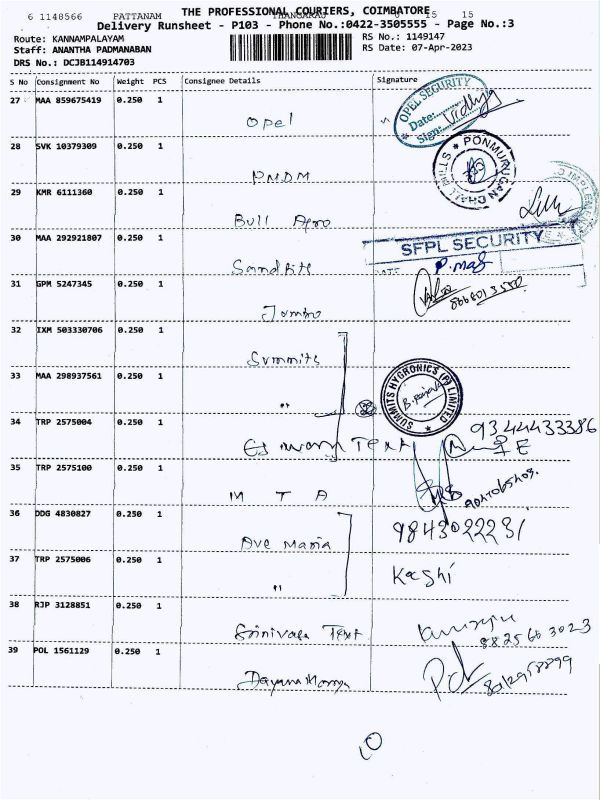 THE PROFESSIONAL COURIERS, COIMBATORE
6 1148566 PATTANAM THANGARAJ 6 15 15
Delivery Runsheet - P103 - Phone No.:0422-3505555 - Page No.:3
Route: KANNAMPALAYAM RS No.: 1149147
Staff: ANANTHA PADMANABAN RS Date: 07-Apr-2023
DRS No.: DCJB114914703
S No Consignment No Weight PCS Consignee Details Signature
27 MAA 859675419 0.250 1
Opel
OPEL SECURITY
Date:
Sign:
28 SVK 10379309 0.250 1
PMDM
PONMURUGAN DHALL MILLS
29 KMR 6111360 0.250 1
Bull Agro
30 MAA 292921807 0.250 1
SFPL SECURITY
31 GPM 5247345 0.250 1
Jumbo
32 IXM 503330706 0.250 1
Summits
33 MAA 298937561 0.250 1
"
SUMMITS HYGRONICS (P) LIMITED
34 TRP 2575004 0.250 1
Text
9344433386
35 TRP 2575100 0.250 1
M T A
36 DDG 4830827 0.250 1
Ave Maria
9843022231
37 TRP 2575006 0.250 1
"
Kashi
38 RJP 3128851 0.250 1
Srinivasa Text
39 POL 1561129 0.250 1
10